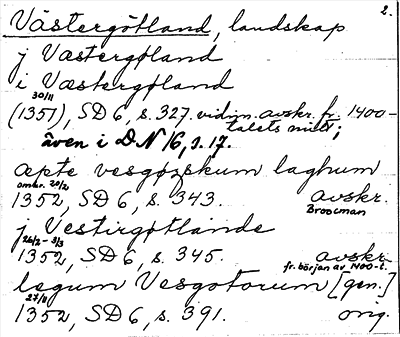 2.
Västergötland, landskap
j Væstergøland
i Væstergøland
30/11
(1351), SD 6, s. 327. vidim. avskr. fr. 1400-
talets mitt;
även i DN 16, s. 17.
æpte vesgøzskum laghum
omkr. 20/2
1352, SD 6, s. 343. avskr.
Brocman
j Vestirgøtlande
26/2 - 3/3
1352, SD 6, s. 345. avskr.
fr. början av 1400-t.
legum Vesgotorum [gen.]
27/8
1352, SD 6, s. 391. orig.